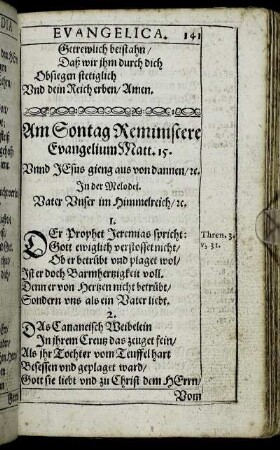 EVANGELICA. 141
Getrewlich beistahn/
Daß wir ihm durch dich
Obsiegen stetiglich
Vnd dein Reich erben/Amen.
Am Sontag Reministere
Evangelium Matt. 15.
Vnnd JEsus gieng aus von dannen/ꝛc.
In der Melodei.
Vater Vnser im Himmelreich/ꝛc.
1.
DEr Prophet Jeremias spricht:
Thren. 3.
v. 31.
Gott ewiglich verstosset nicht/
Ob er betrübt und plaget wol/
Ist er doch Barmhertzigkeit voll.
Denn er von Hertzen nicht betrübt/
Sondern vns als ein Vater liebt.
2.
DAs Cananeisch Weibelein
In ihrem Creutz das zeuget fein/
Als ihr Tochter vom Teuffel hart
Besessen vnd geplaget ward/
Gott sie liebt vnd zu Christ dem HErrn/
Vom